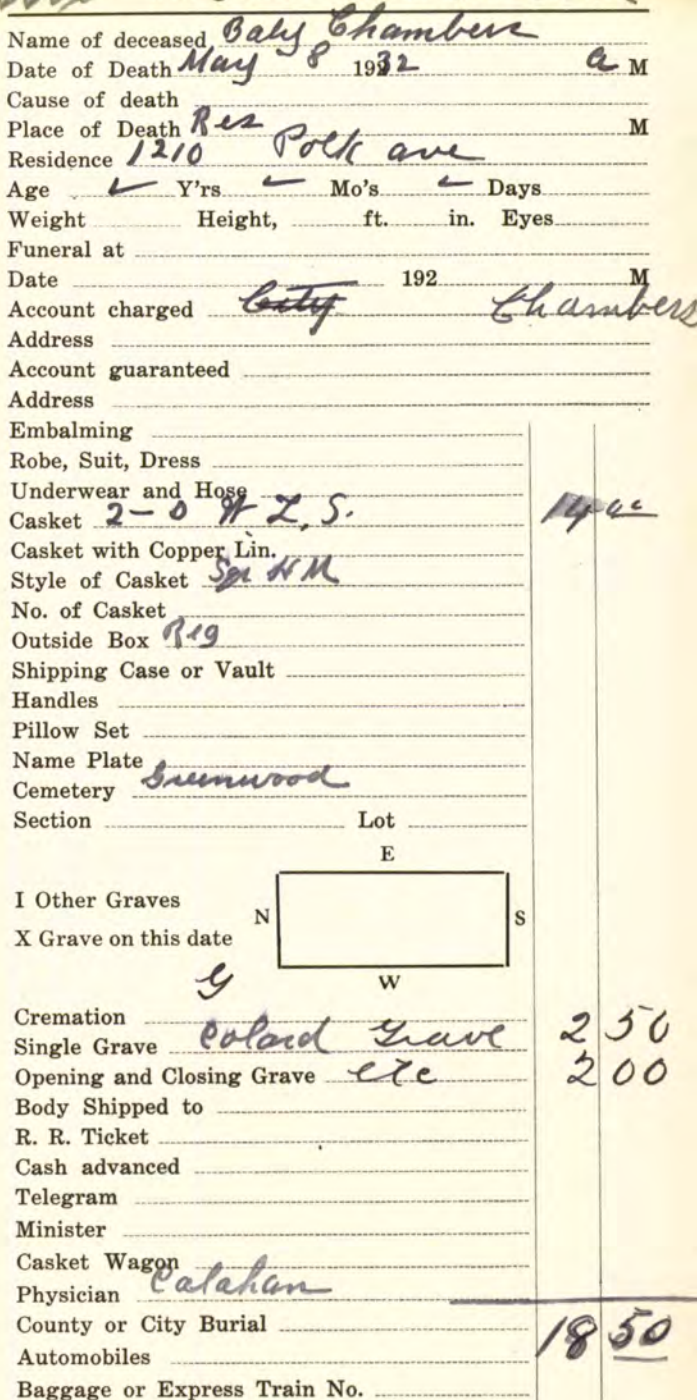 Name of deceased Baby Chambers
Date of Death May 8 1932 a M
Cause of death
Place of Death Res M
Residence 1210 Polk ave
Age ✓ Y'rs ✓ Mo's ✓ Days
Weight Height, ft. in. Eyes
Funeral at
Date 192 M
Account charged City Chambers
Address
Account guaranteed
Address
Embalming
Robe, Suit, Dress
Underwear and Hose
Casket 2-0 W Z, S. 14 00
Casket with Copper Lin.
Style of Casket Sqr
No. of Casket
Outside Box Reg
Shipping Case or Vault
Handles
Pillow Set
Name Plate
Cemetery Greenwood
Section Lot
E
I Other Graves
N S
X Grave on this date
W
Cremation
Single Grave Colard Grave 2 50
Opening and Closing Grave etc 2 00
Body Shipped to
R. R. Ticket
Cash advanced
Telegram
Minister
Casket Wagon
Physician Calahan
County or City Burial 18 50
Automobiles
Baggage or Express Train No.